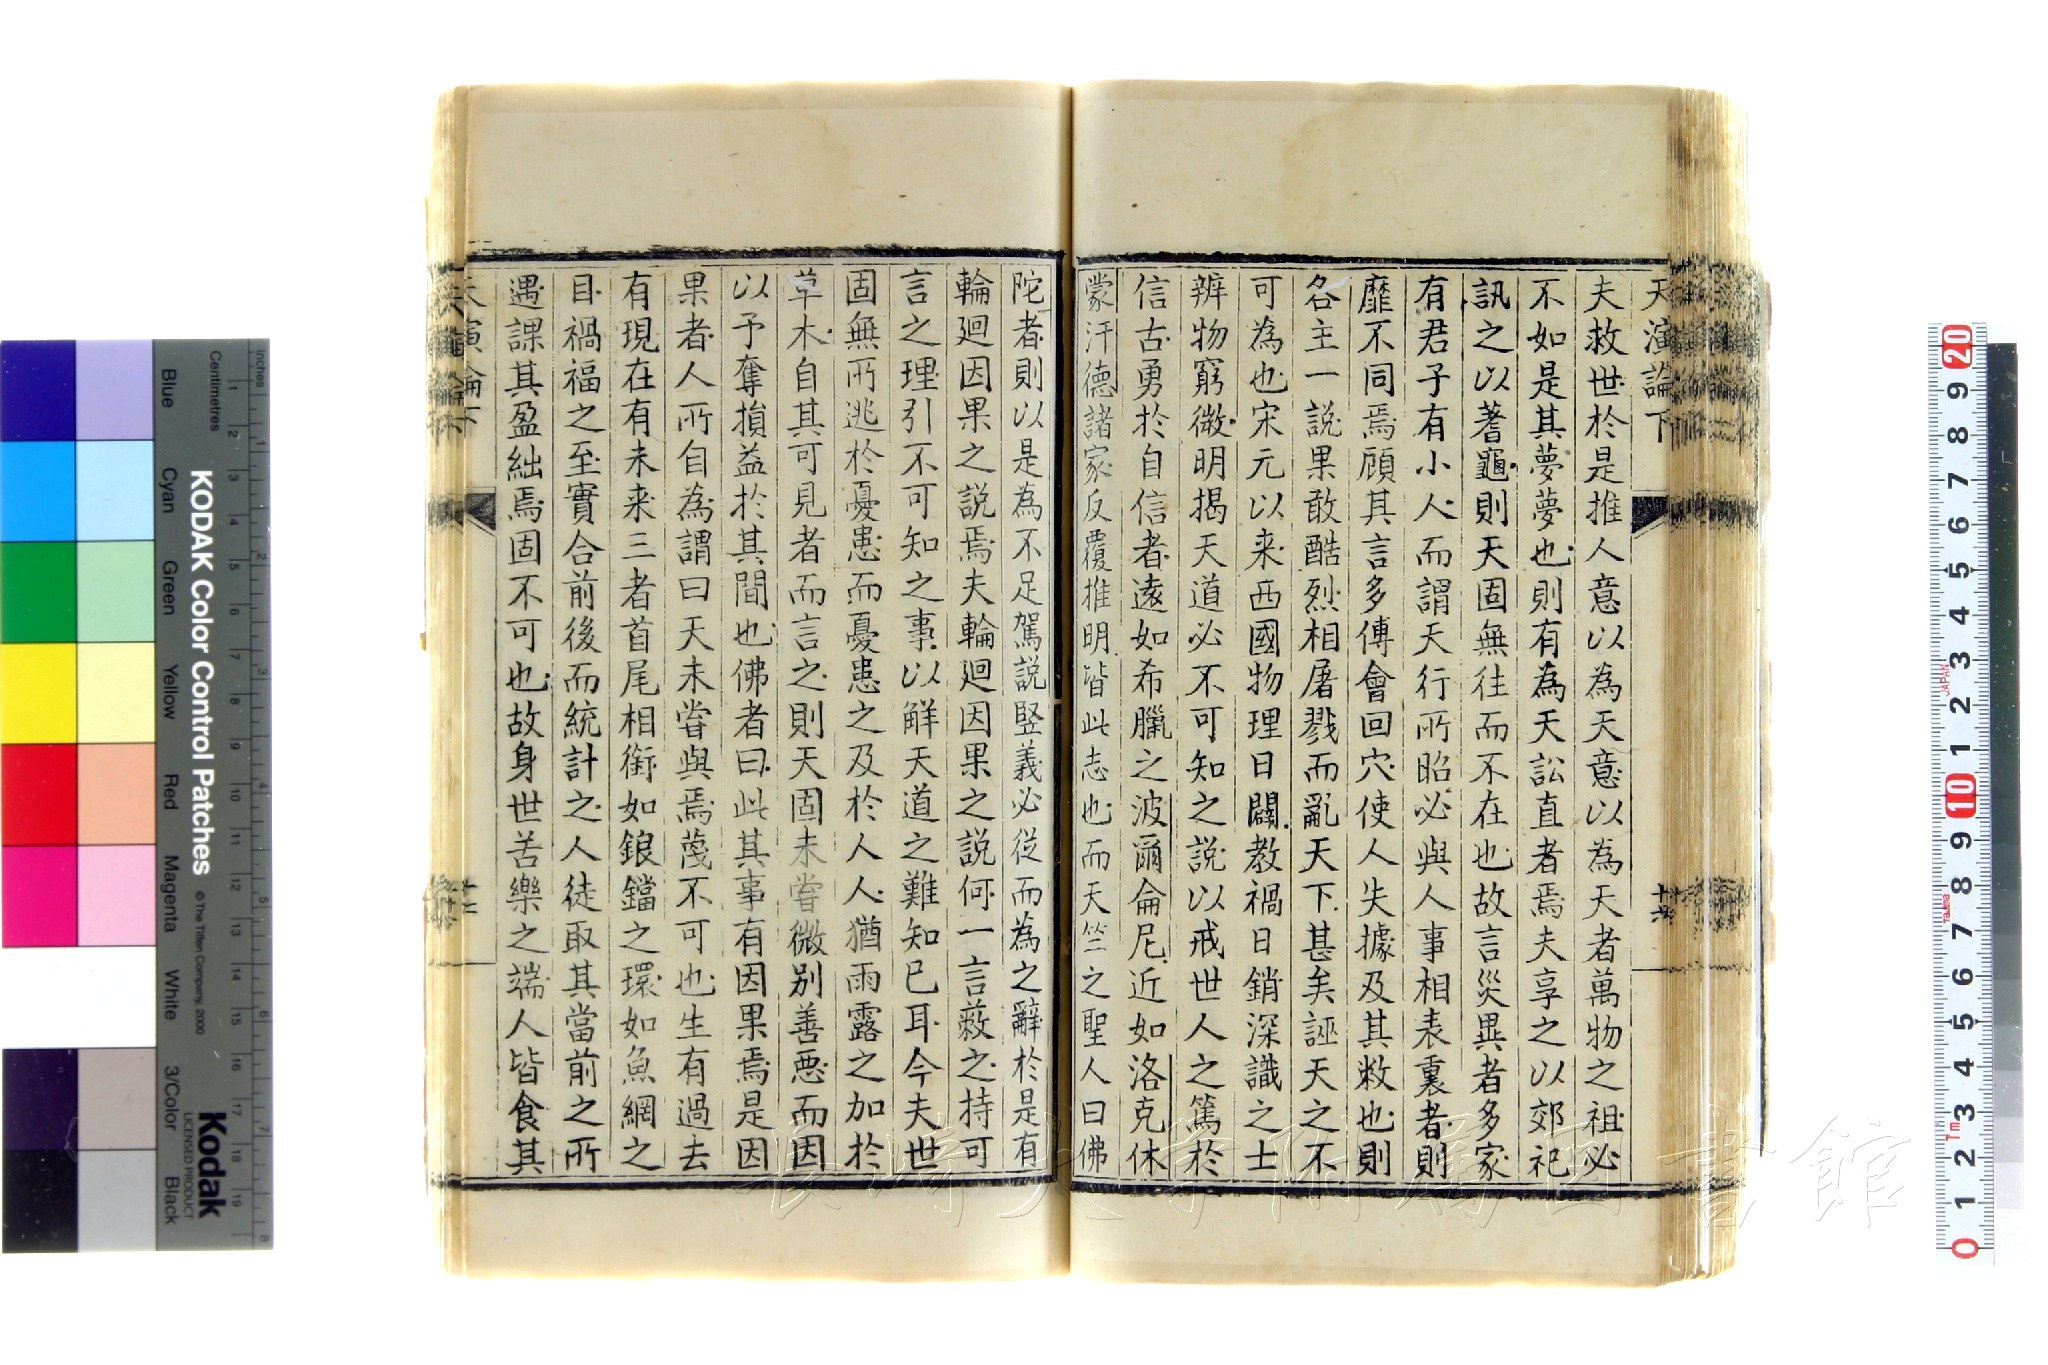 天演論下
夫救世於是推人意以為天意以為天者萬物之祖必
不如是其夢夢也則有為天訟直者焉夫享之以郊祀
訊之以蓍龜則天固無往而不在也故言災異者多家
有君子有小人而謂天行所昭必與人事相表裏者則
靡不同焉顧其言多傅會回穴使人失據及其敝也則
各主一說果敢酷烈相屠戮而亂天下甚矣誣天之不
可為也宋元以來西國物理日闢教禍日銷深識之士
辨物窮微明揭天道必不可知之說以戒世人之篤於
信古勇於自信者遠如希臘之波爾侖尼近如洛克休
蒙汗德諸家反覆推明皆此志也而天竺之聖人曰佛
陀者則以是為不足駕說竪義必從而為之辭於是有
輪廻因果之說焉夫輪廻因果之說何一言蔽之持可
言之理引不可知之事以解天道之難知已耳今夫世
固無所逃於憂患而憂患之及於人人猶雨露之加於
草木自其可見者而言之則天固未嘗微別善惡而因
以予奪損益於其間也佛者曰此其事有因果焉是因
果者人所自為謂曰天未嘗與焉蔑不可也生有過去
有現在有未來三者首尾相銜如鋃鐺之環如魚網之
目禍福之至實合前後而統計之人徒取其當前之所
遇課其盈絀焉固不可也故身世苦樂之端人皆食其
天演論下
KODAK Color Control Patches
© The Tiffen Company, 2000
Kodak
LICENSED PRODUCT
Inches
Centimetres
Blue
Cyan
Green
Yellow
Red
Magenta
White
3/Color
Black
JAPAN
長崎大学附属図書館